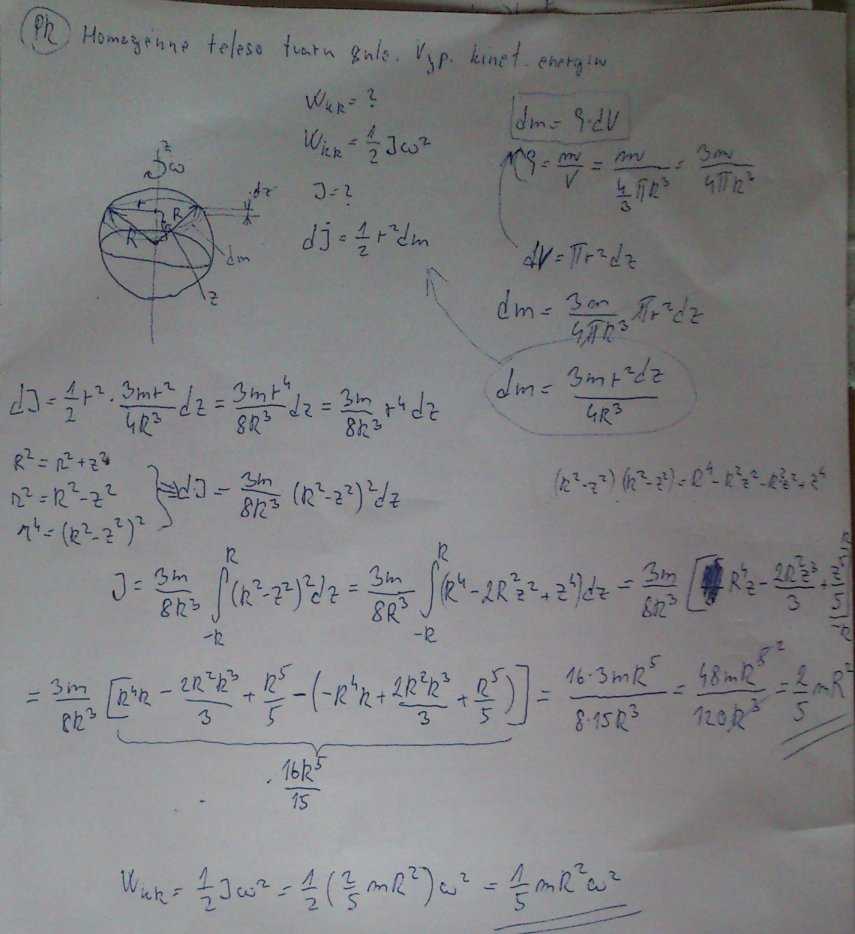 PR Homogénne teleso tvaru gule. Vyp. kinet. energiu
W_kR = ?
W_kR = 1/2 J ω²
J = ?
dJ = 1/2 r² dm
z
ω
dz
r
R
R
dm
z
dm = ρ·dV
ρ = m/V = m/(4/3 π R³) = 3m/(4πR³)
dV = πr² dz
dm = 3m/(4πR³) πr² dz
dm = 3mr² dz/(4R³)
dJ = 1/2 r² · 3mr²/(4R³) dz = 3mr⁴/(8R³) dz = 3m/(8R³) r⁴ dz
R² = r² + z²
r² = R² - z²
r⁴ = (R² - z²)²
⇒ dJ = 3m/(8R³) (R² - z²)² dz
(R² - z²)(R² - z²) = R⁴ - R²z² - R²z² + z⁴
J = 3m/(8R³) ∫_{-R}^{R} (R² - z²)² dz = 3m/(8R³) ∫_{-R}^{R} (R⁴ - 2R²z² + z⁴) dz = 3m/(8R³) [R⁴z - 2R²z³/3 + z⁵/5]_{-R}^{R}
= 3m/(8R³) [R⁴R - 2R²R³/3 + R⁵/5 - (-R⁴R + 2R²R³/3 + R⁵/5)] = 16·3mR⁵/(8·15R³) = 48mR⁵ ²/(120R³) = 2/5 mR²
16R⁵/15
W_kR = 1/2 J ω² = 1/2 (2/5 mR²) ω² = 1/5 mR²ω²